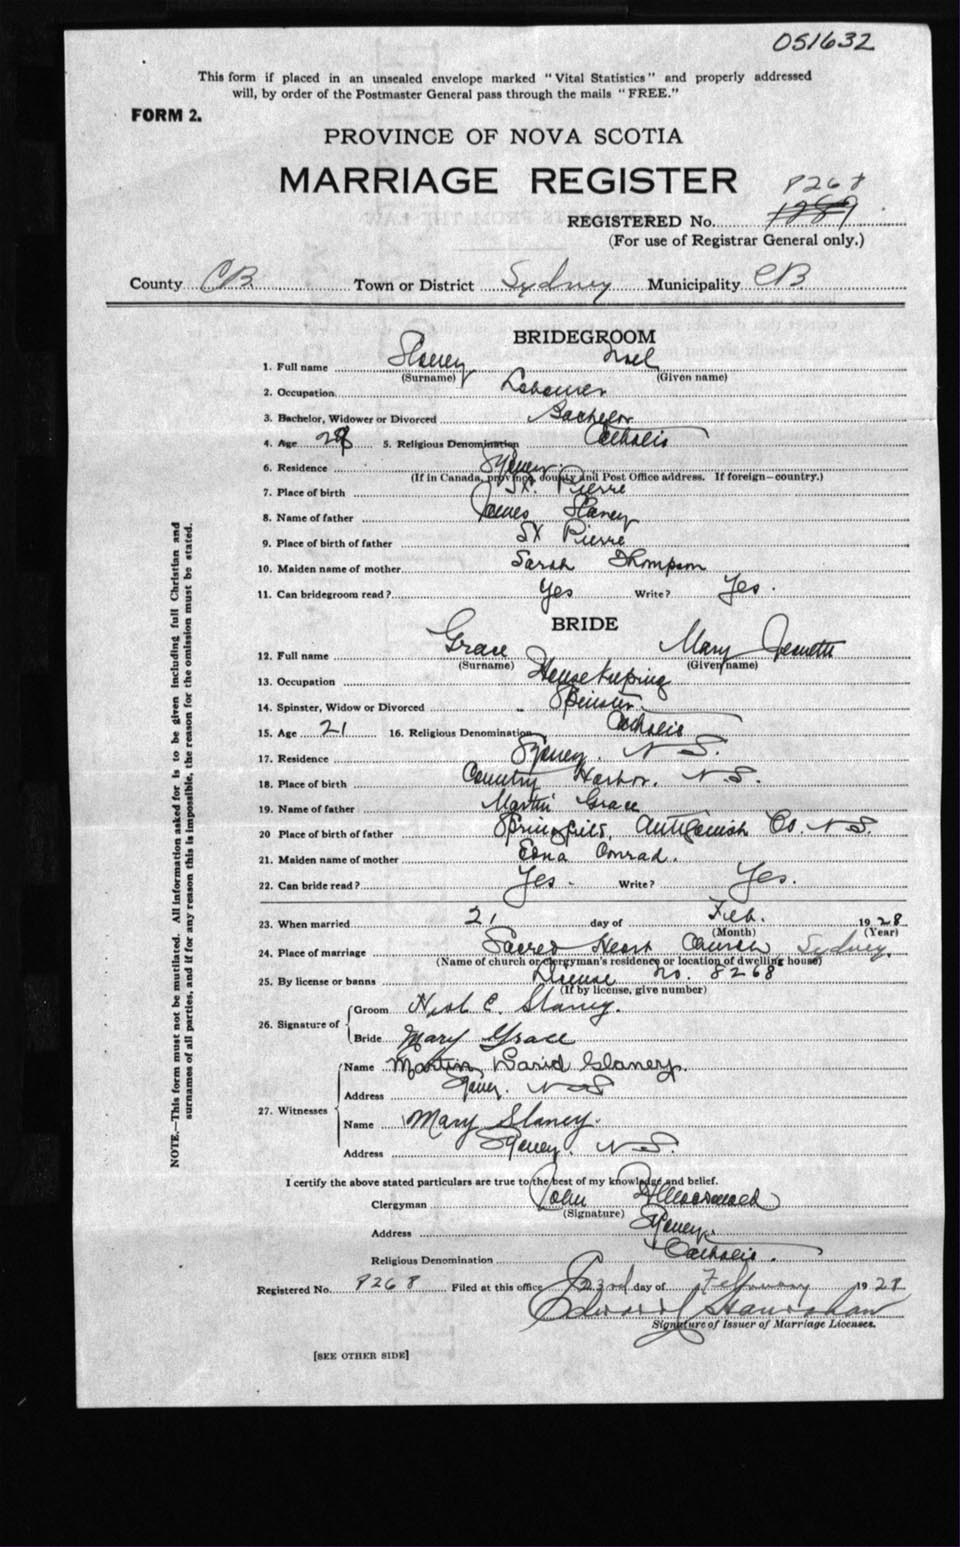 051632
This form if placed in an unsealed envelope marked "Vital Statistics" and properly addressed
will, by order of the Postmaster General pass through the mails "FREE."
FORM 2.
PROVINCE OF NOVA SCOTIA
MARRIAGE REGISTER
8268
REGISTERED No.
(For use of Registrar General only.)
County CB Town or District Sydney Municipality CB
BRIDEGROOM
1. Full name Slaney Noel
(Surname) (Given name)
2. Occupation Labourer
3. Bachelor, Widower or Divorced Bachelor
4. Age 28 5. Religious Denomination Catholic
6. Residence Sydney.
(If in Canada, province, county and Post Office address. If foreign—country.)
7. Place of birth St. Pierre
8. Name of father James Slaney
9. Place of birth of father St Pierre
10. Maiden name of mother Sarah Thompson
11. Can bridegroom read? Yes Write? Yes.
BRIDE
12. Full name Grace Mary Jenette
(Surname) (Given name)
13. Occupation Housekeeping
14. Spinster, Widow or Divorced Spinster.
15. Age 21 16. Religious Denomination Catholic
17. Residence Sydney. N S.
18. Place of birth Country Harbor. N S.
19. Name of father Martin Grace
20 Place of birth of father Antigonish Co. N S.
21. Maiden name of mother Edna Conrad.
22. Can bride read? Yes. Write? Yes.
23. When married 21 day of Feb. 1928
(Month) (Year)
24. Place of marriage Sacred Heart Church Sydney.
(Name of church or clergyman's residence or location of dwelling house)
25. By license or banns License No. 8268
(If by license, give number)
26. Signature of Groom Noel C. Slaney.
Bride Mary Grace
27. Witnesses Name Martin David Slaney.
Address Sydney. N S
Name Mary Slaney.
Address Sydney. N S.
I certify the above stated particulars are true to the best of my knowledge and belief.
Clergyman John
(Signature)
Address Sydney.
Religious Denomination Catholic.
Registered No. 8268 Filed at this office 23rd day of February 1928
Edward
Signature of Issuer of Marriage Licenses.
[SEE OTHER SIDE]
NOTE.—This form must not be mutilated. All information asked for is to be given including full Christian and
surnames of all parties, and if for any reason this is impossible, the reason for the omission must be stated.